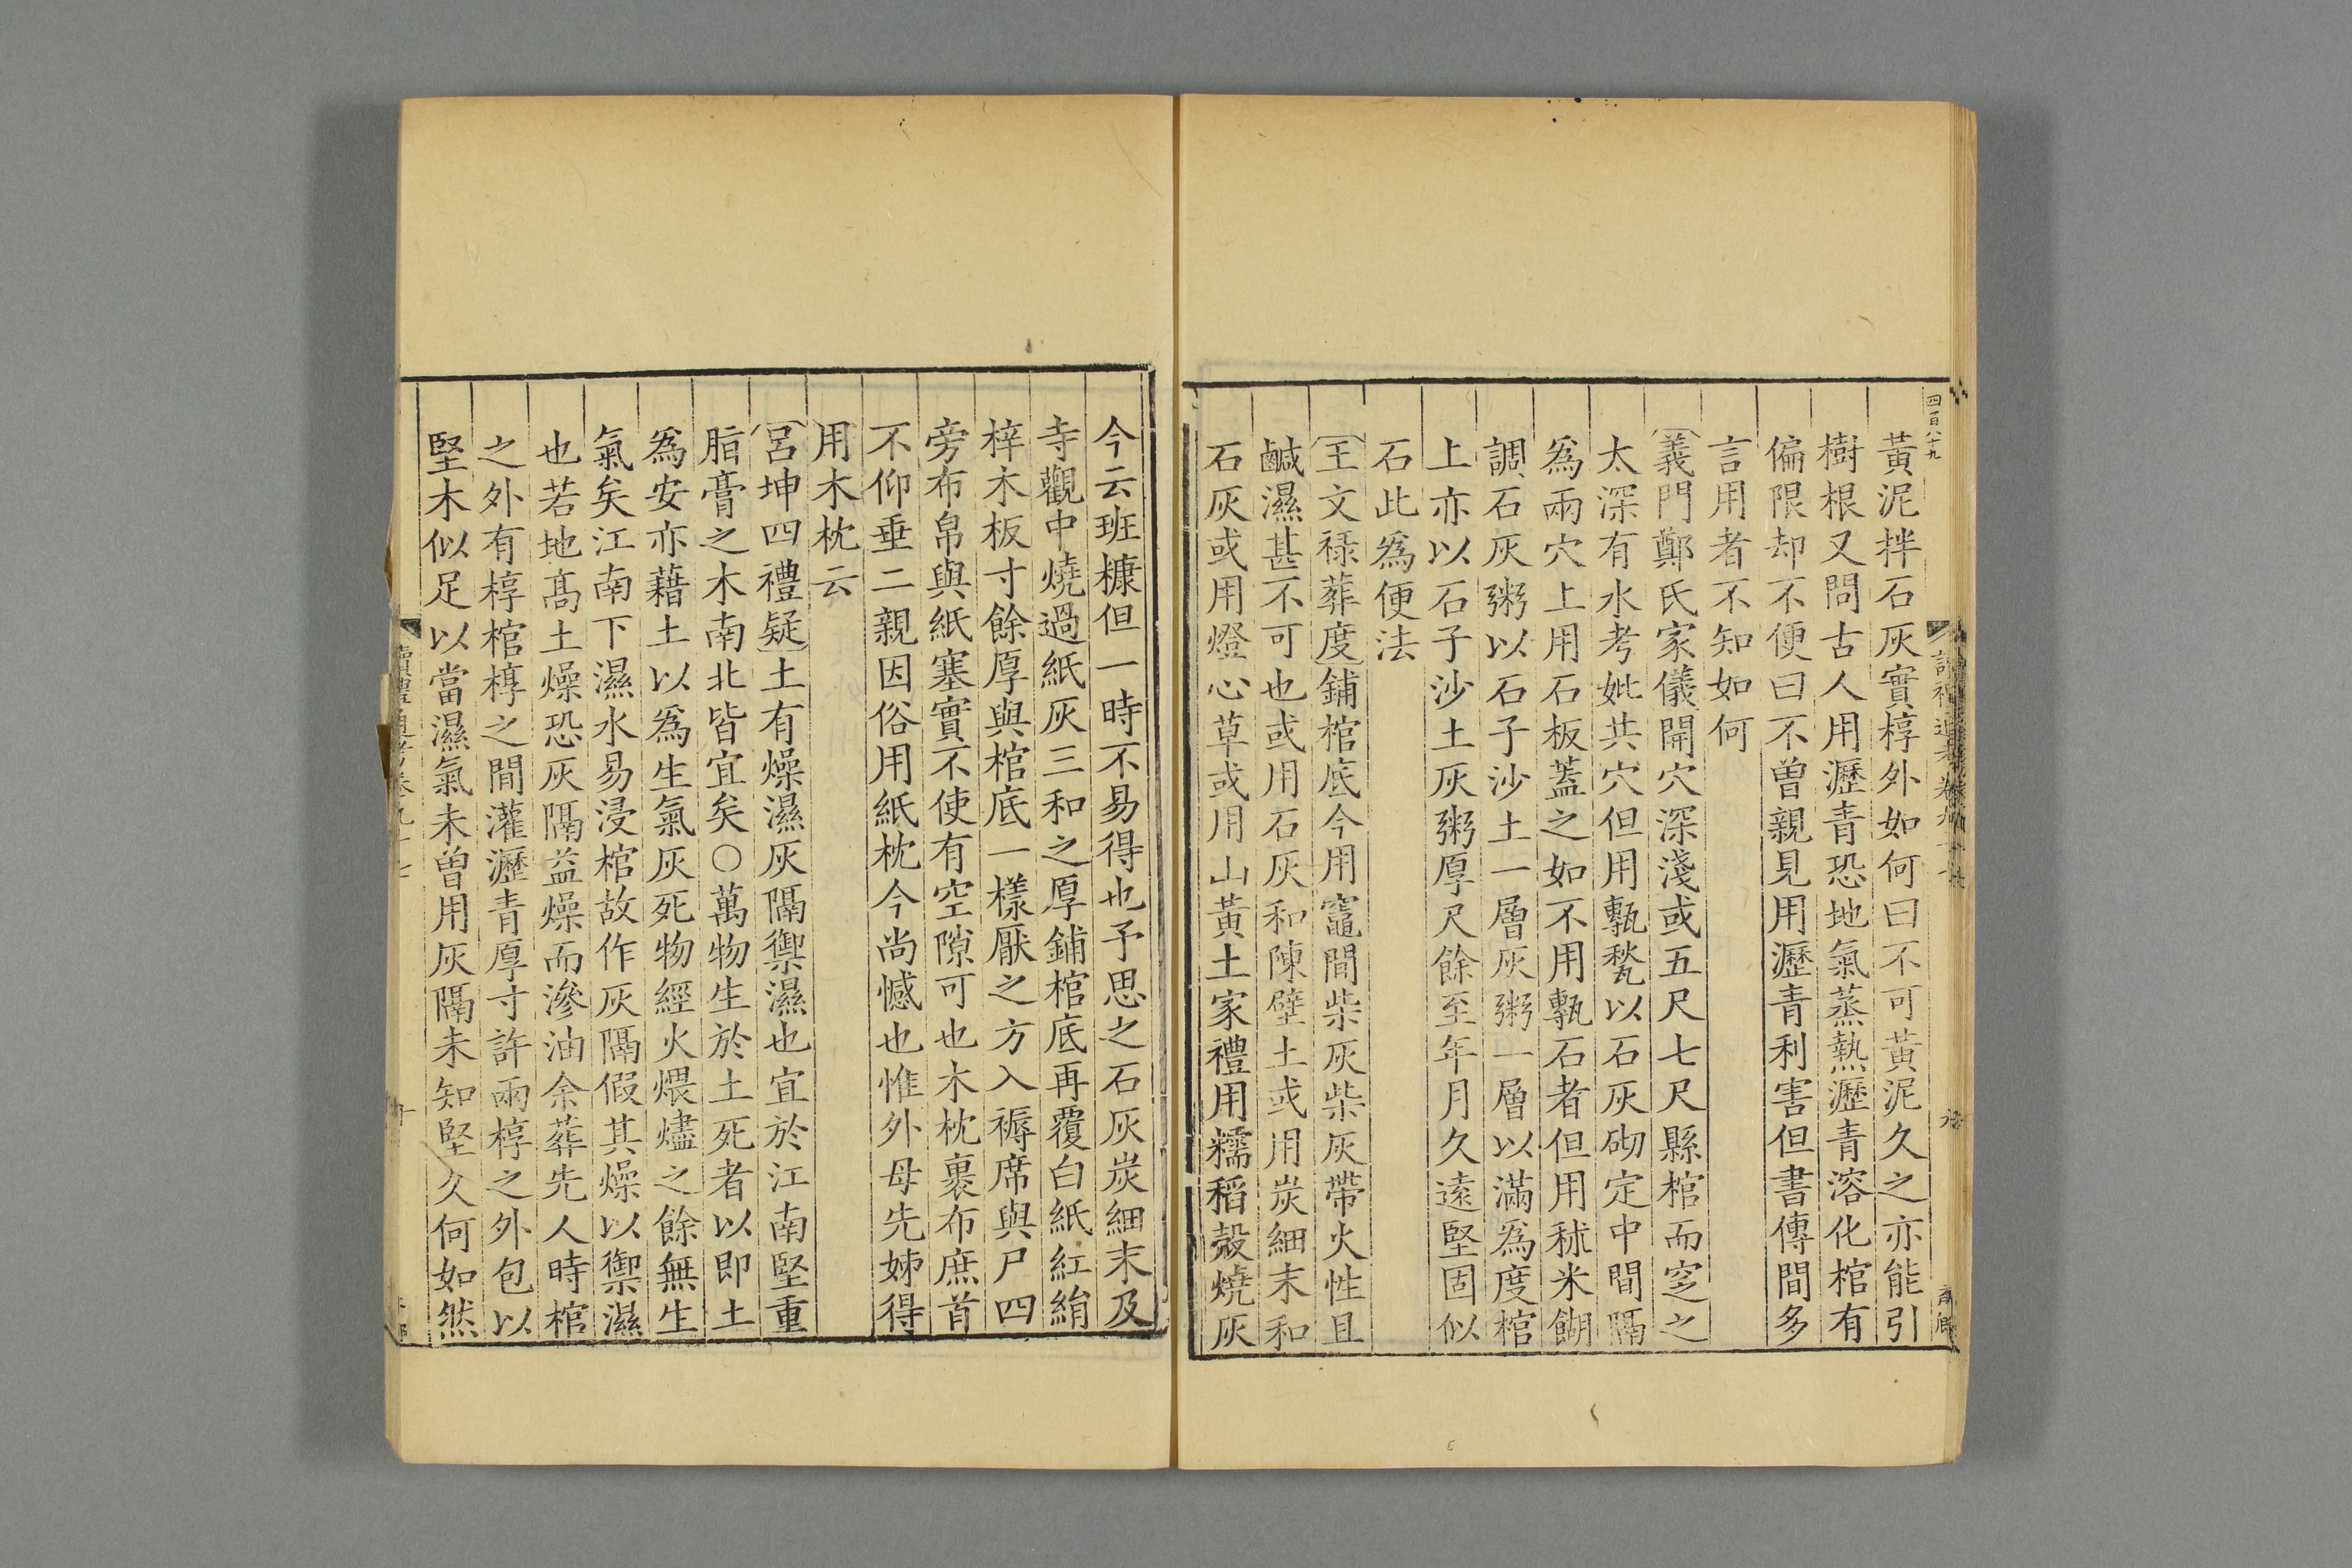 四百八十九
黃泥拌石灰實椁外如何曰不可黃泥久之亦能引
樹根又問古人用瀝青恐地氣蒸熱瀝青溶化棺有
偏限却不便曰不曾親見用瀝青利害但書傳間多
言用者不知如何
義門鄭氏家儀開穴深淺或五尺七尺縣棺而窆之
太深有水考妣共穴但用甎甃以石灰砌定中間隔
爲兩穴上用石板蓋之如不用甎石者但用秫米餬
調石灰粥以石子沙土一層灰粥一層以滿爲度棺
上亦以石子沙土灰粥厚尺餘至年月久遠堅固似
石此爲便法
王文祿葬度鋪棺底今用竈間柴灰柴灰帶火性且
鹹濕甚不可也或用石灰和陳壁土或用炭細末和
石灰或用燈心草或用山黃土家禮用糯稻殼燒灰
今云班糠但一時不易得也予思之石灰炭細末及
寺觀中燒過紙灰三和之厚鋪棺底再覆白紙紅絹
梓木板寸餘厚與棺底一樣厭之方入褥席與尸四
旁布帛與紙塞實不使有空隙可也木枕裹布庶首
不仰垂二親因俗用紙枕今尚憾也惟外母先姊得
用木枕云
呂坤四禮疑土有燥濕灰隔禦濕也宜於江南堅重
脂膏之木南北皆宜矣○萬物生於土死者以即土
爲安亦藉土以爲生氣灰死物經火煨燼之餘無生
氣矣江南下濕水易浸棺故作灰隔假其燥以禦濕
也若地高土燥恐灰隔益燥而滲油余葬先人時棺
之外有椁棺椁之間灌瀝青厚寸許兩椁之外包以
堅木似足以當濕氣未曾用灰隔未知堅久何如然